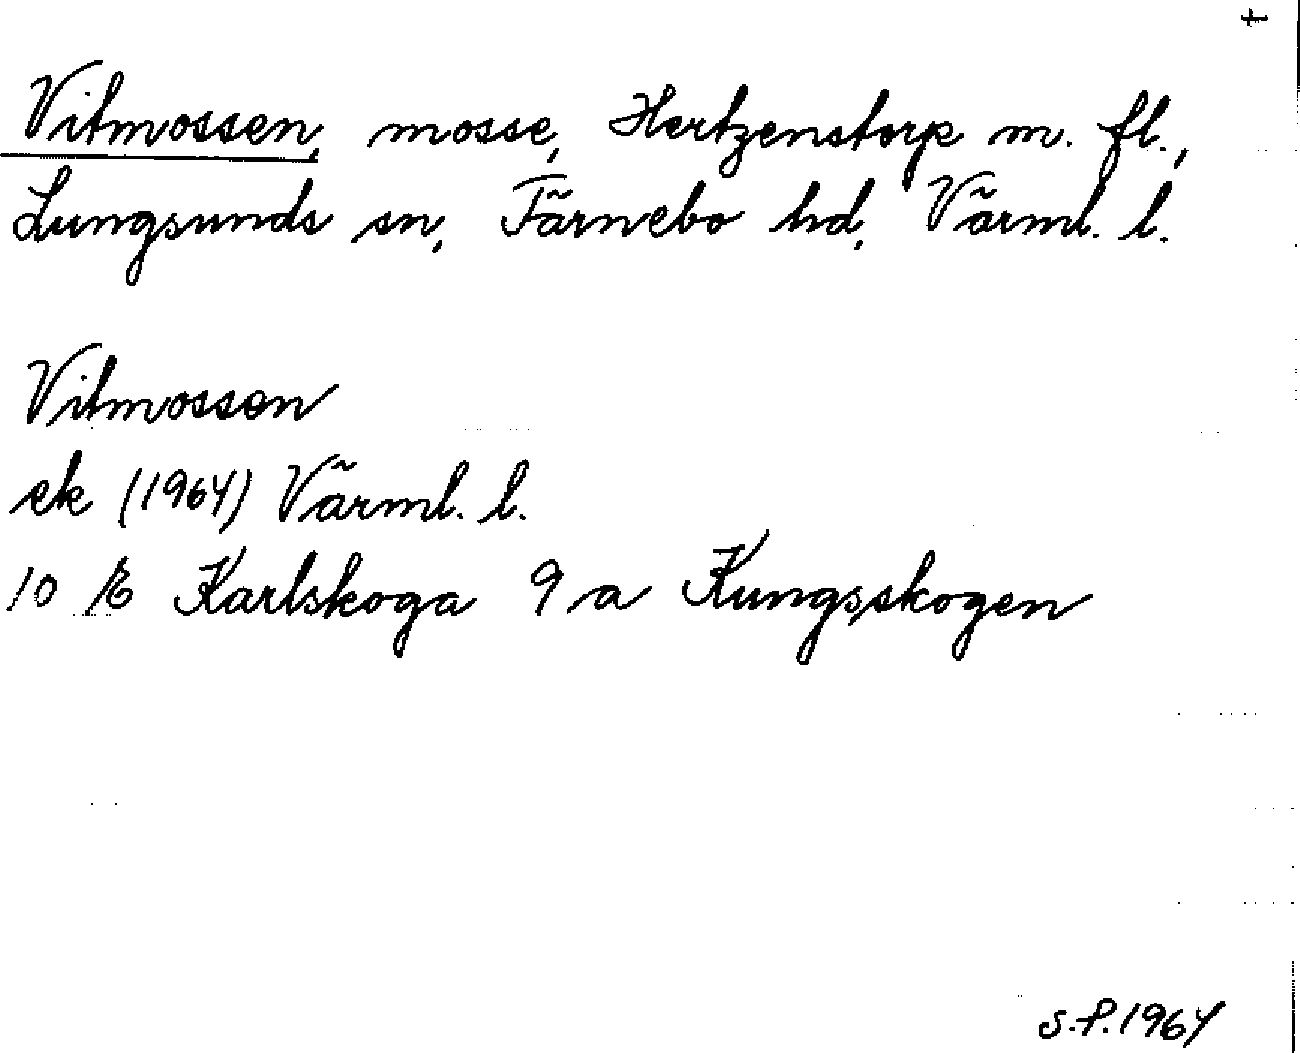 t
Vitmossen, mosse, Hertzenstorp m. fl.,
Lungsunds sn, Färnebo hd, Värml. l.
Vitmossen
ek (1964) Värml. l.
10 E Karlskoga 9 a Kungsskogen
S.P. 1964